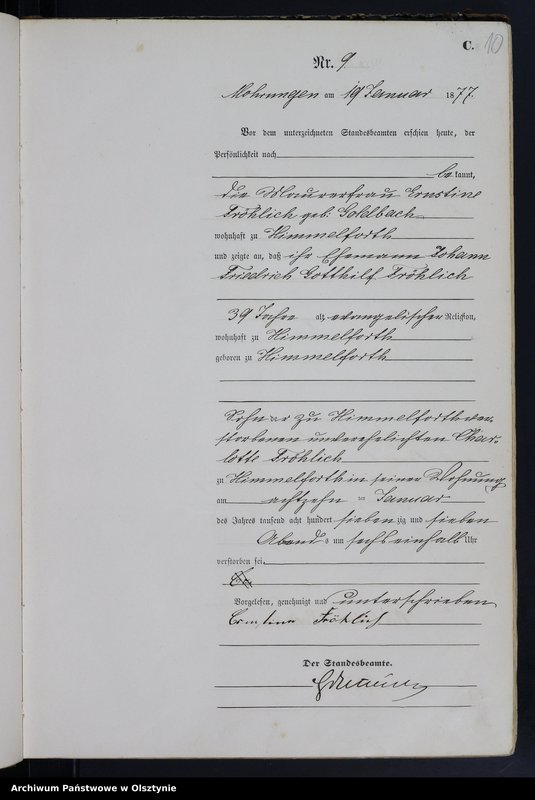 C. 10
Nr. 9
Mohrungen am 19 Januar 1877.
Vor dem unterzeichneten Standesbeamten erschien heute, der
Persönlichkeit nach
be kannt,
die Maurerfrau Ernstine
Fröhlich geb: Goldbach
wohnhaft zu Himmelforth
und zeigte an, daß ihr Ehemann Johann
Friedrich Gotthilf Fröhlich
39 Jahre alt, evangelischer Religion,
wohnhaft zu Himmelforth
geboren zu Himmelforth
Sohn der zu Himmelforth ver-
storbenen unverehelichten Char-
lotte Fröhlich
zu Himmelforth in seiner Wohnung
am achtzehn ten Januar
des Jahres tausend acht hundert sieben zig und sieben
Abend s um sechs einhalb Uhr
verstorben sei.
Vorgelesen, genehmigt und unterschrieben
Ernstine Fröhlich
Der Standesbeamte.
Archiwum Państwowe w Olsztynie